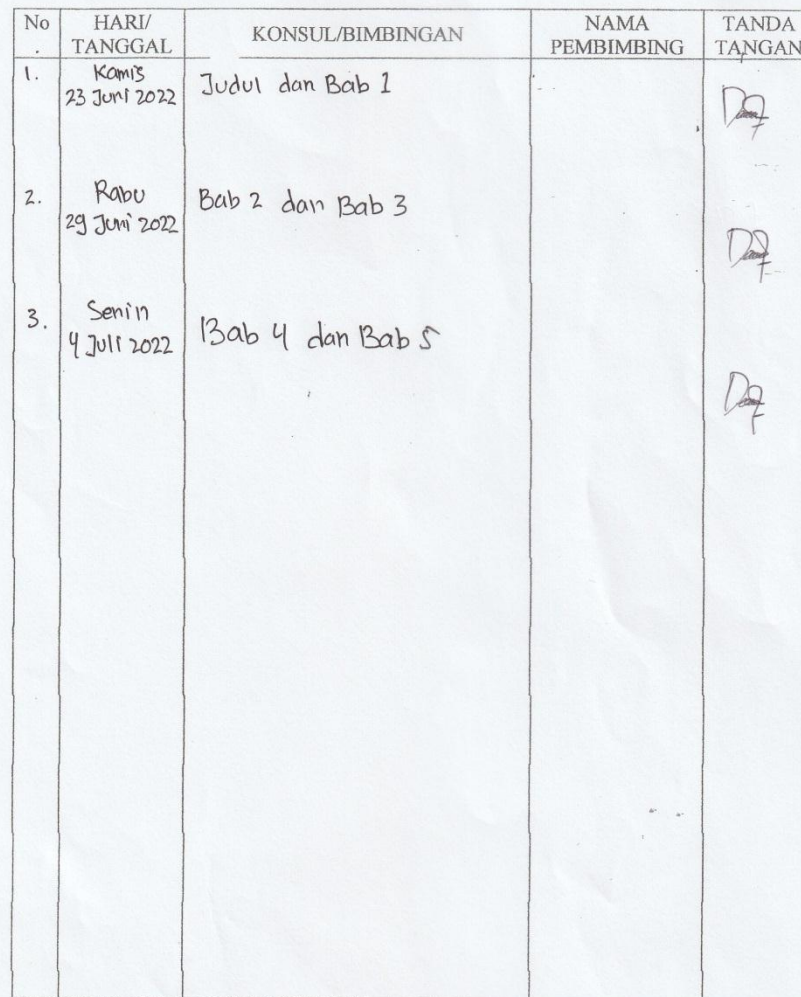 No
.
HARI/
TANGGAL
KONSUL/BIMBINGAN
NAMA
PEMBIMBING
TANDA
TANGAN
1.
Kamis
23 Juni 2022
Judul dan Bab 1
2.
Rabu
29 Juni 2022
Bab 2 dan Bab 3
3.
Senin
4 Juli 2022
Bab 4 dan Bab 5